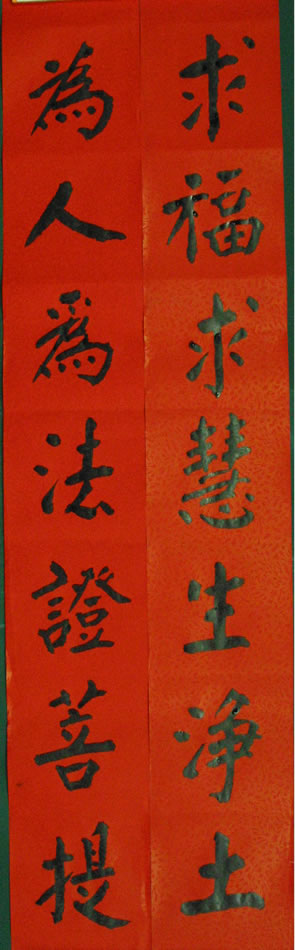 求福求慧生淨土
為人爲法證菩提